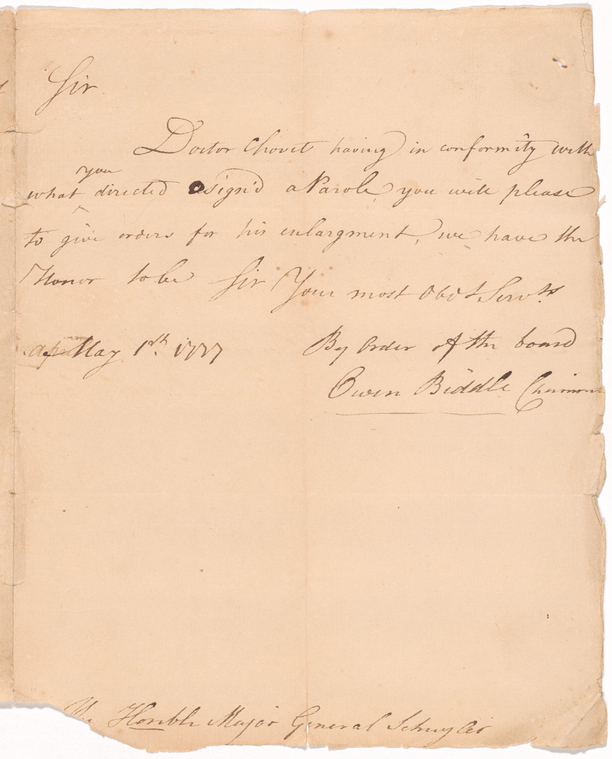 Sir
Doctor Chovet having in conformity with
you
what directed signd a Parole you will please
to give orders for his enlargment, we have the
Honor to be Sir Your most Obdt Servts
May 1st. 1777
By Order of the board
Owen Biddle Chairman
Honble Major General Schuyler